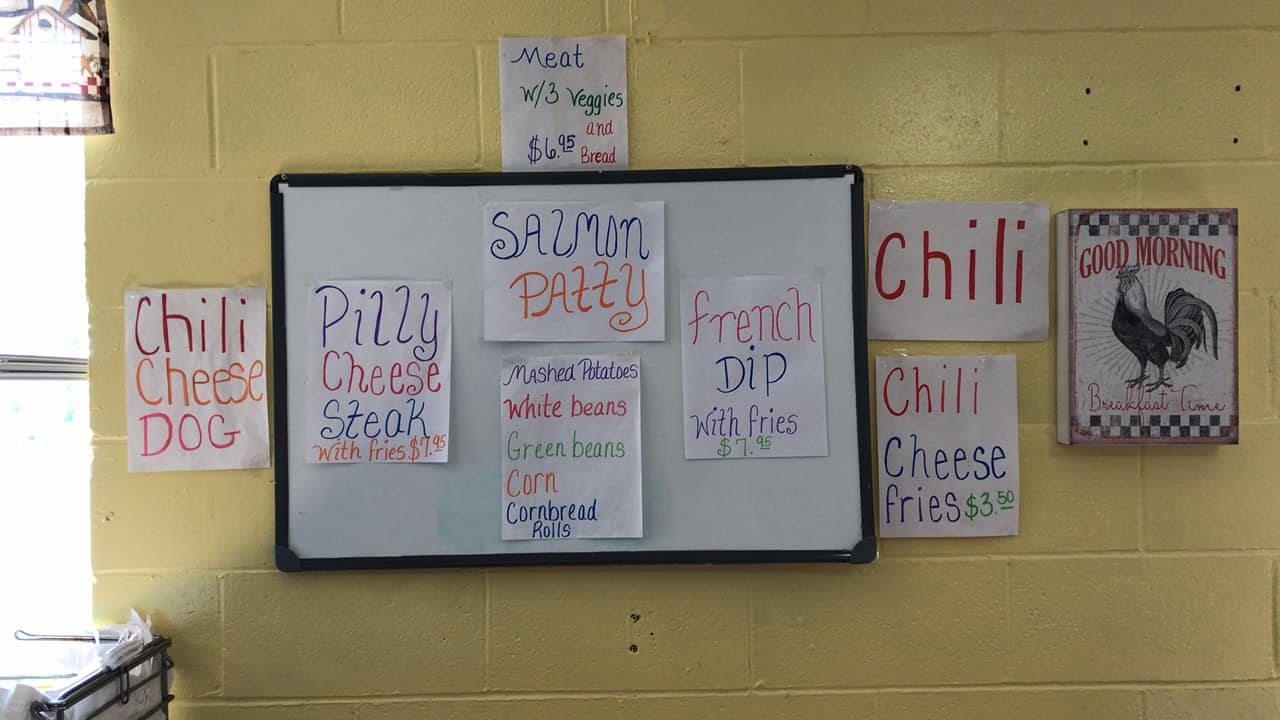 Meat
W/3 Veggies
and
$6.95 Bread
SALMON
PATTY
Chili
Cheese
DOG
Pilly
Cheese
Steak
With fries $7.95
Mashed Potatoes
White beans
Green beans
Corn
Cornbread
Rolls
french
Dip
With fries
$7.95
Chili
Chili
Cheese
fries $3.50
GOOD MORNING
Breakfast Time